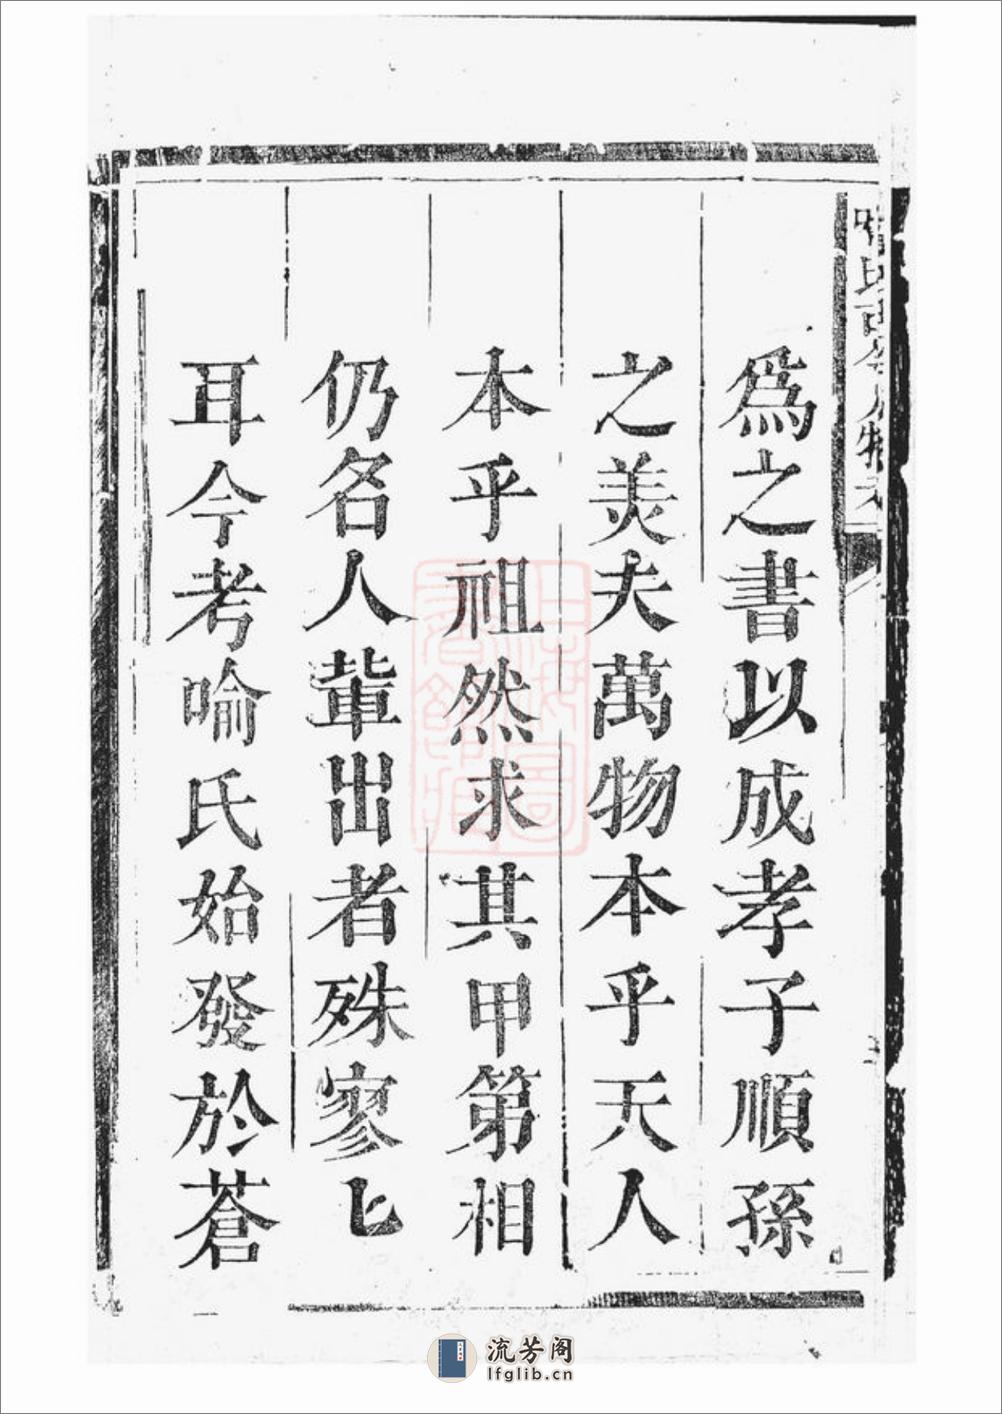 爲之書以成孝子順孫
之美夫萬物本乎天人
本乎祖然求其甲第相
仍名人軰出者殊寥匕
耳今考喻氏始發於蒼
流芳阁
lfglib.cn